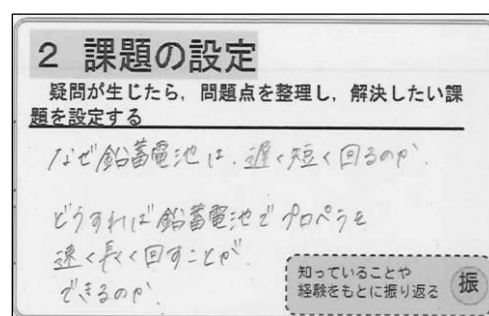 2 課題の設定
疑問が生じたら，問題点を整理し，解決したい課
題を設定する
なぜ鉛蓄電池は、遅く短く回るのか。
どうすれば鉛蓄電池でプロペラを
速く長く回すことが
できるのか。
知っていることや
経験をもとに振り返る
振